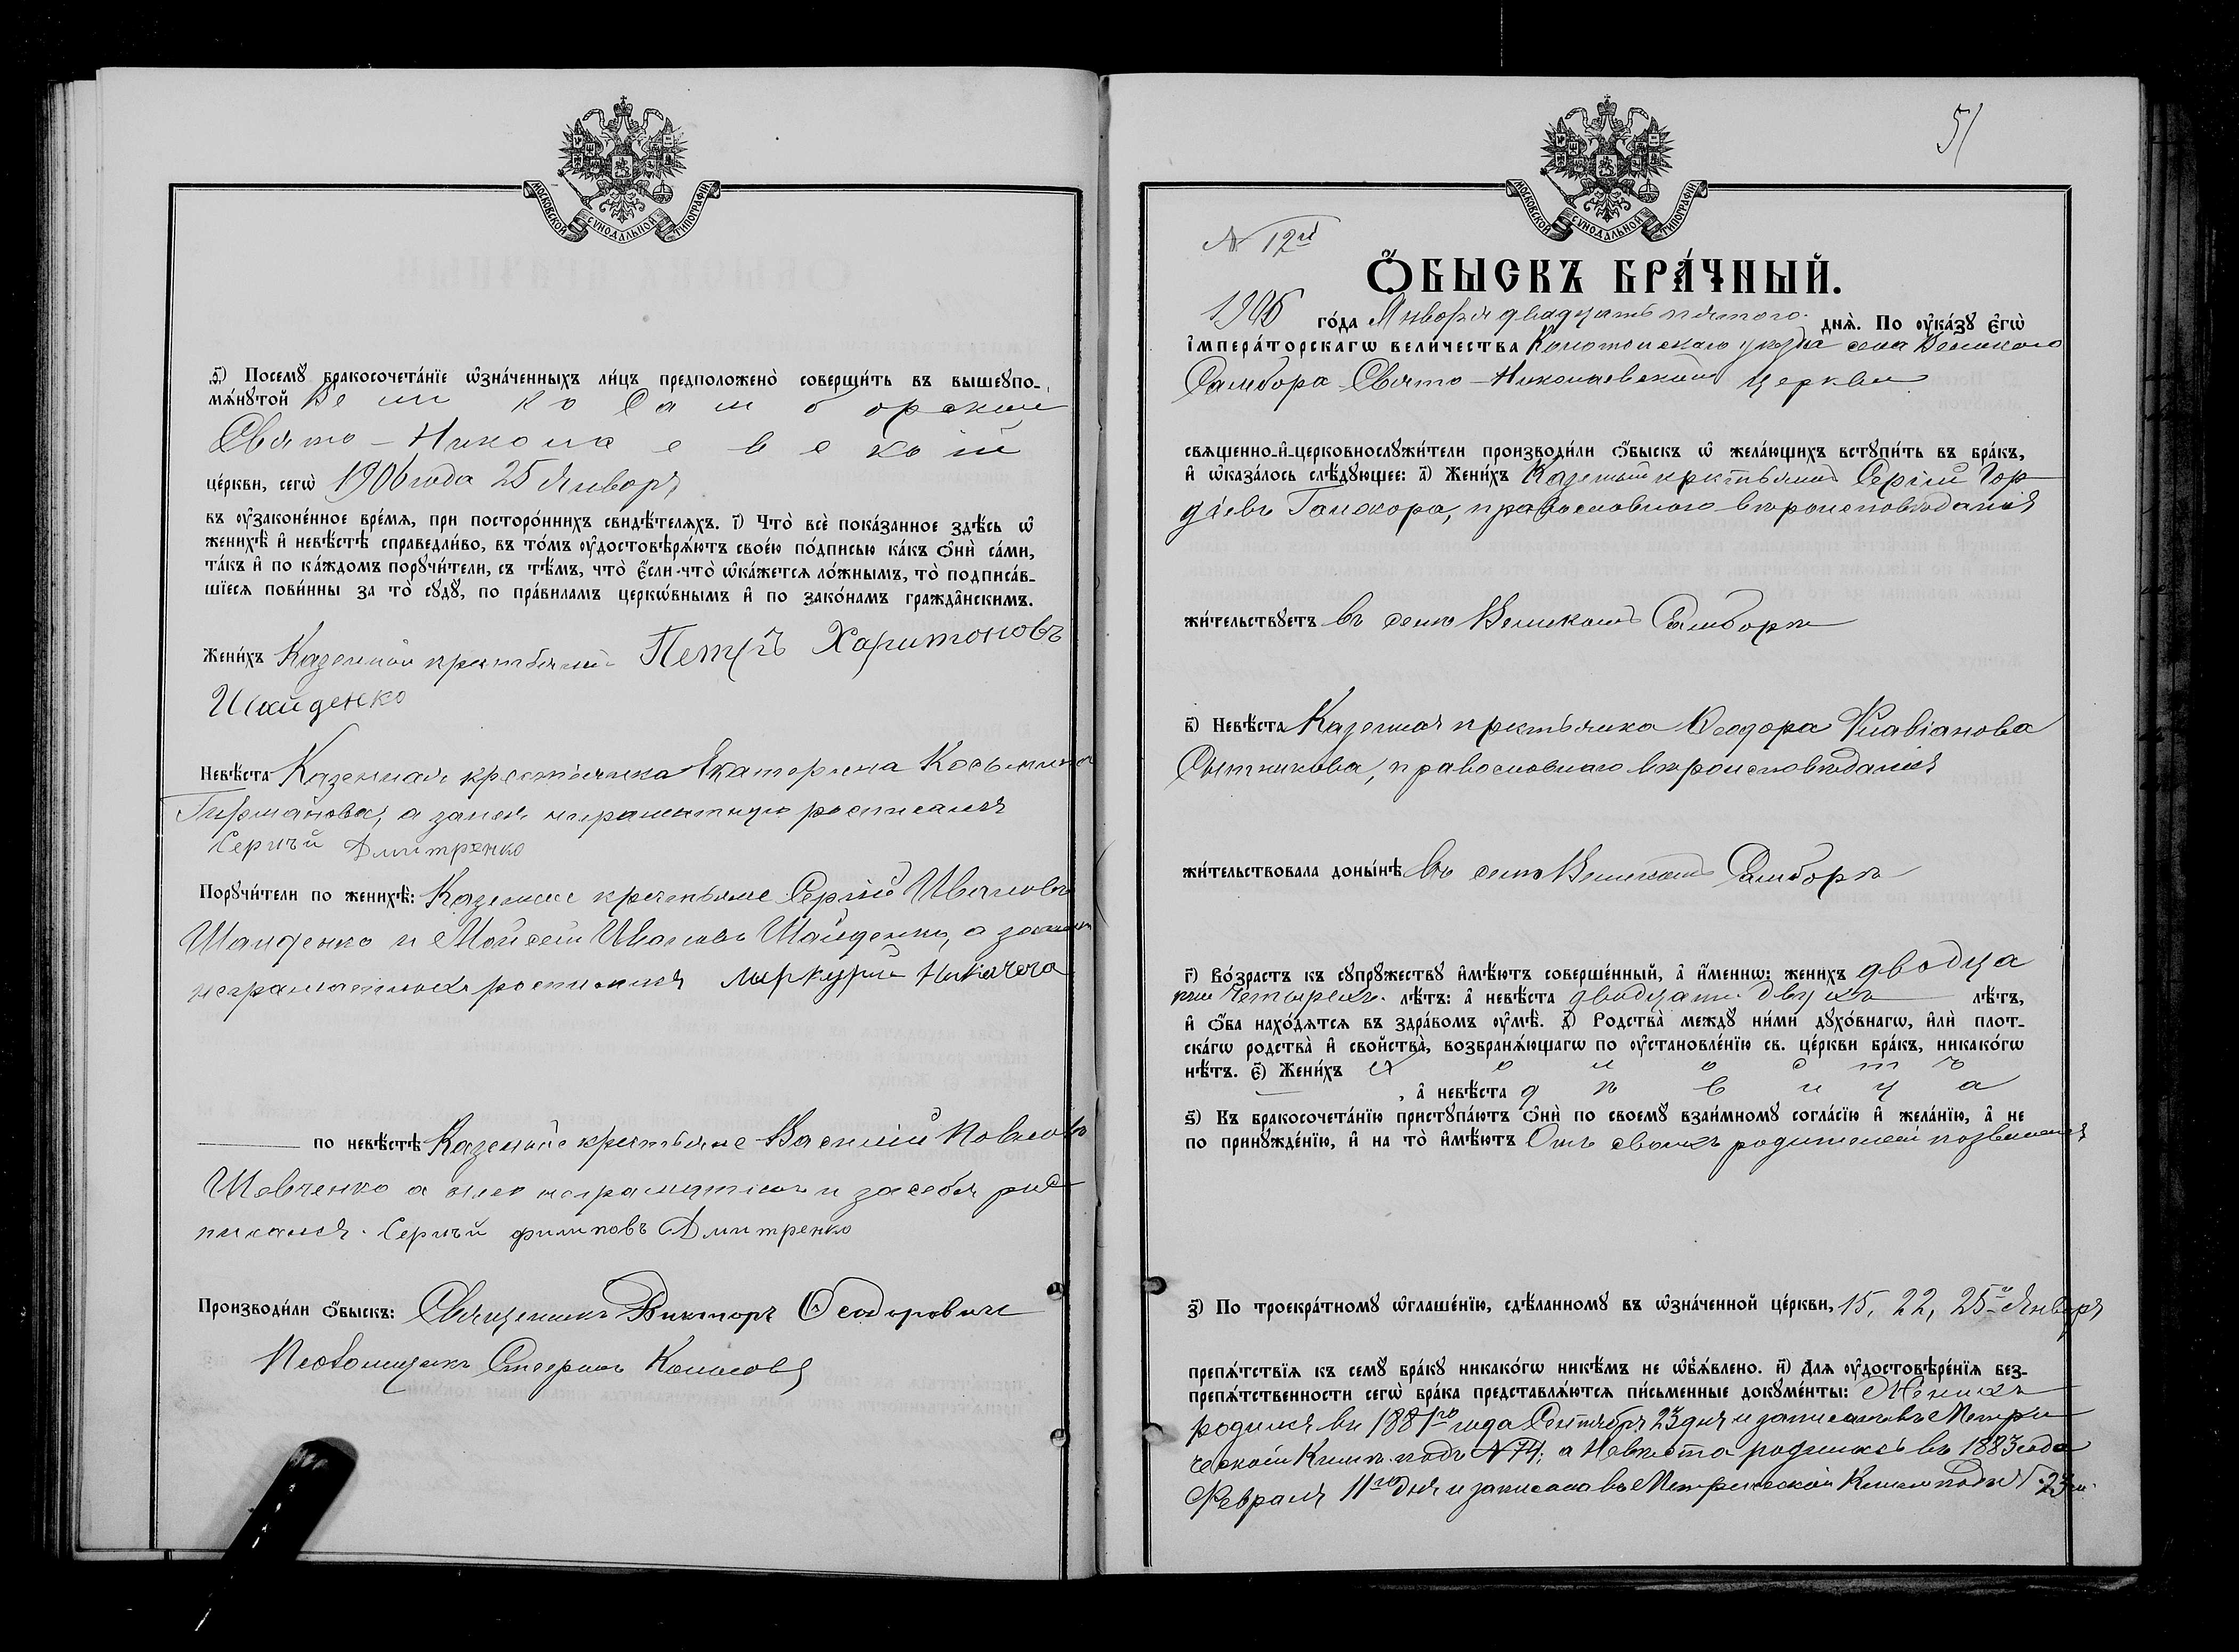 МОСКОВСКОЙ СѴНОДАЛЬНОЙ ТИПОГРАФІИ
ѳ҃) Посемꙋ̀ бракосочета́нїе ѡ҆зна́ченныхъ ли́цъ предположено̀ соверши́ть въ вышеꙋпо-
мѧ́нꙋтой Велико Самборской
Свято-Николаевской
це́ркви, сегѡ̀ 1906 года 25 Января
въ ᲂу҆законе́нное вре́мѧ, при посторо́ннихъ свидѣ́телѧхъ. і҃) Что̀ всѐ пока́занное здѣ́сь ѡ҆
женихѣ̀ и҆ невѣ́стѣ справедли́во, въ то́мъ ᲂу҆достовѣрѧ́ютъ свое́ю по́дписью ка́къ ѻ҆нѝ са́ми,
та́къ и҆ по ка́ждомъ порꙋчи́тели, съ тѣ́мъ, что̀ є҆́сли что̀ ѡ҆ка́жетсѧ ло́жнымъ, то̀ подписа́в-
шїесѧ пови́нны за то̀ сꙋдꙋ̀, по пра́виламъ церкѡ́внымъ и҆ по зако́намъ гражда̑нскимъ.
Жени́хъ Казенный крестьянин Петръ Харитоновъ
Шайденко
Невѣ́ста Казенная крестьянка Екатерина Косьмина
а за нея неграмотную росписался
Сергѣй Дмитренко
Порꙋчи́тели по женихѣ̀: Казенные крестьяне Сергій Ивановъ
Шайденко и Мойсей Ивановъ Шайденко, а за
неграмотных росписался Меркурій
по невѣ́стѣ Казеные крестьяне Василій Павловъ
Шевченко а за него неграмотного и за себя рос
писался. Сергѣй Филиповъ Дмитренко
Производи́ли ѻ҆́быскъ: Священникъ Викторъ Ѳеодоровичъ
Псаломщикъ
51
МОСКОВСКОЙ СѴНОДАЛЬНОЙ ТИПОГРАФІИ
№ 12й
Ѻ҆́БЫСКЪ БРА́ЧНЫЙ.
1906 го́да Января двадцать пятого днѧ̀. По ᲂу҆ка́зꙋ є҆гѡ̀
і҆мпера́торскагѡ вели́чества Конотопского уезда села Великого
Самбора Свято-Николаевской церкви
свѧщенно-и҆-церковнослꙋжи́тели производи́ли ѻ҆́быскъ ѡ҆ жела́ющихъ встꙋпи́ть въ бра́къ,
и҆ ѡ҆каза́лось слѣ́дꙋющее: а҃) Жени́хъ Казеный крестьянинъ Сергій Гор
діевъ православного вероисповѣданія
жи́тельствꙋетъ въ селѣ Великомъ Самборѣ
в҃) Невѣ́ста Казенная крестьянка Ѳеодора Флавіанова
Сытникова, православного вѣроисповѣданія
жи́тельствовала доны́нѣ въ селѣ Великомъ Самборѣ
г҃) Во́зрастъ къ сꙋпрꙋ́жествꙋ и҆мѣ́ютъ соверше́нный, а҆ и҆́менно: жени́хъ двадца
ти четырехъ лѣ́тъ: а҆ невѣ́ста двадцати двухъ лѣ́тъ,
и҆ ѻ҆́ба нахо́дѧтсѧ въ здра́вомъ ᲂу҆мѣ̀. д҃) Родства̀ междꙋ̀ ни́ми дꙋхо́внагѡ, и҆лѝ плот-
ска́гѡ родства̀ и҆ свойства̀, возбранѧ́ющагѡ по ᲂу҆становле́нїю св. це́ркви бра́къ, никако́гѡ
нѣ́тъ. є҃) Жени́хъ холостъ
, а҆ невѣ́ста дѣвица
ѕ҃) Къ бракосочета́нїю пристꙋпа́ютъ ѻ҆нѝ по своемꙋ̀ взаи́мномꙋ согла́сїю и҆ жела́нїю, а҆ не
по принꙋжде́нїю, и҆ на то̀ и҆мѣ́ютъ Отъ своихъ родителей позволенія
з҃) По троекра́тномꙋ ѡ҆глаше́нїю, сдѣ́ланномꙋ въ ѡ҆зна́ченной це́ркви, 15, 22, 25го Января
препѧ́тствїѧ къ семꙋ̀ бра́кꙋ никако́гѡ никѣ́мъ не ѡ҆б̾ѧ́влено. и҃) Длѧ ᲂу҆достовѣре́нїѧ без-
препѧ́тственности сегѡ̀ бра́ка представлѧ́ютсѧ пи́сьменные докꙋме́нты: Женихъ
родился въ 1881го года Сентября 23 дня и записанъ въ Метри
ческой Книгѣ подъ №74; а Невѣста родилась въ 1883 года
Февраля 11го дня и записана въ Метрической Книгѣ подъ № 23м.